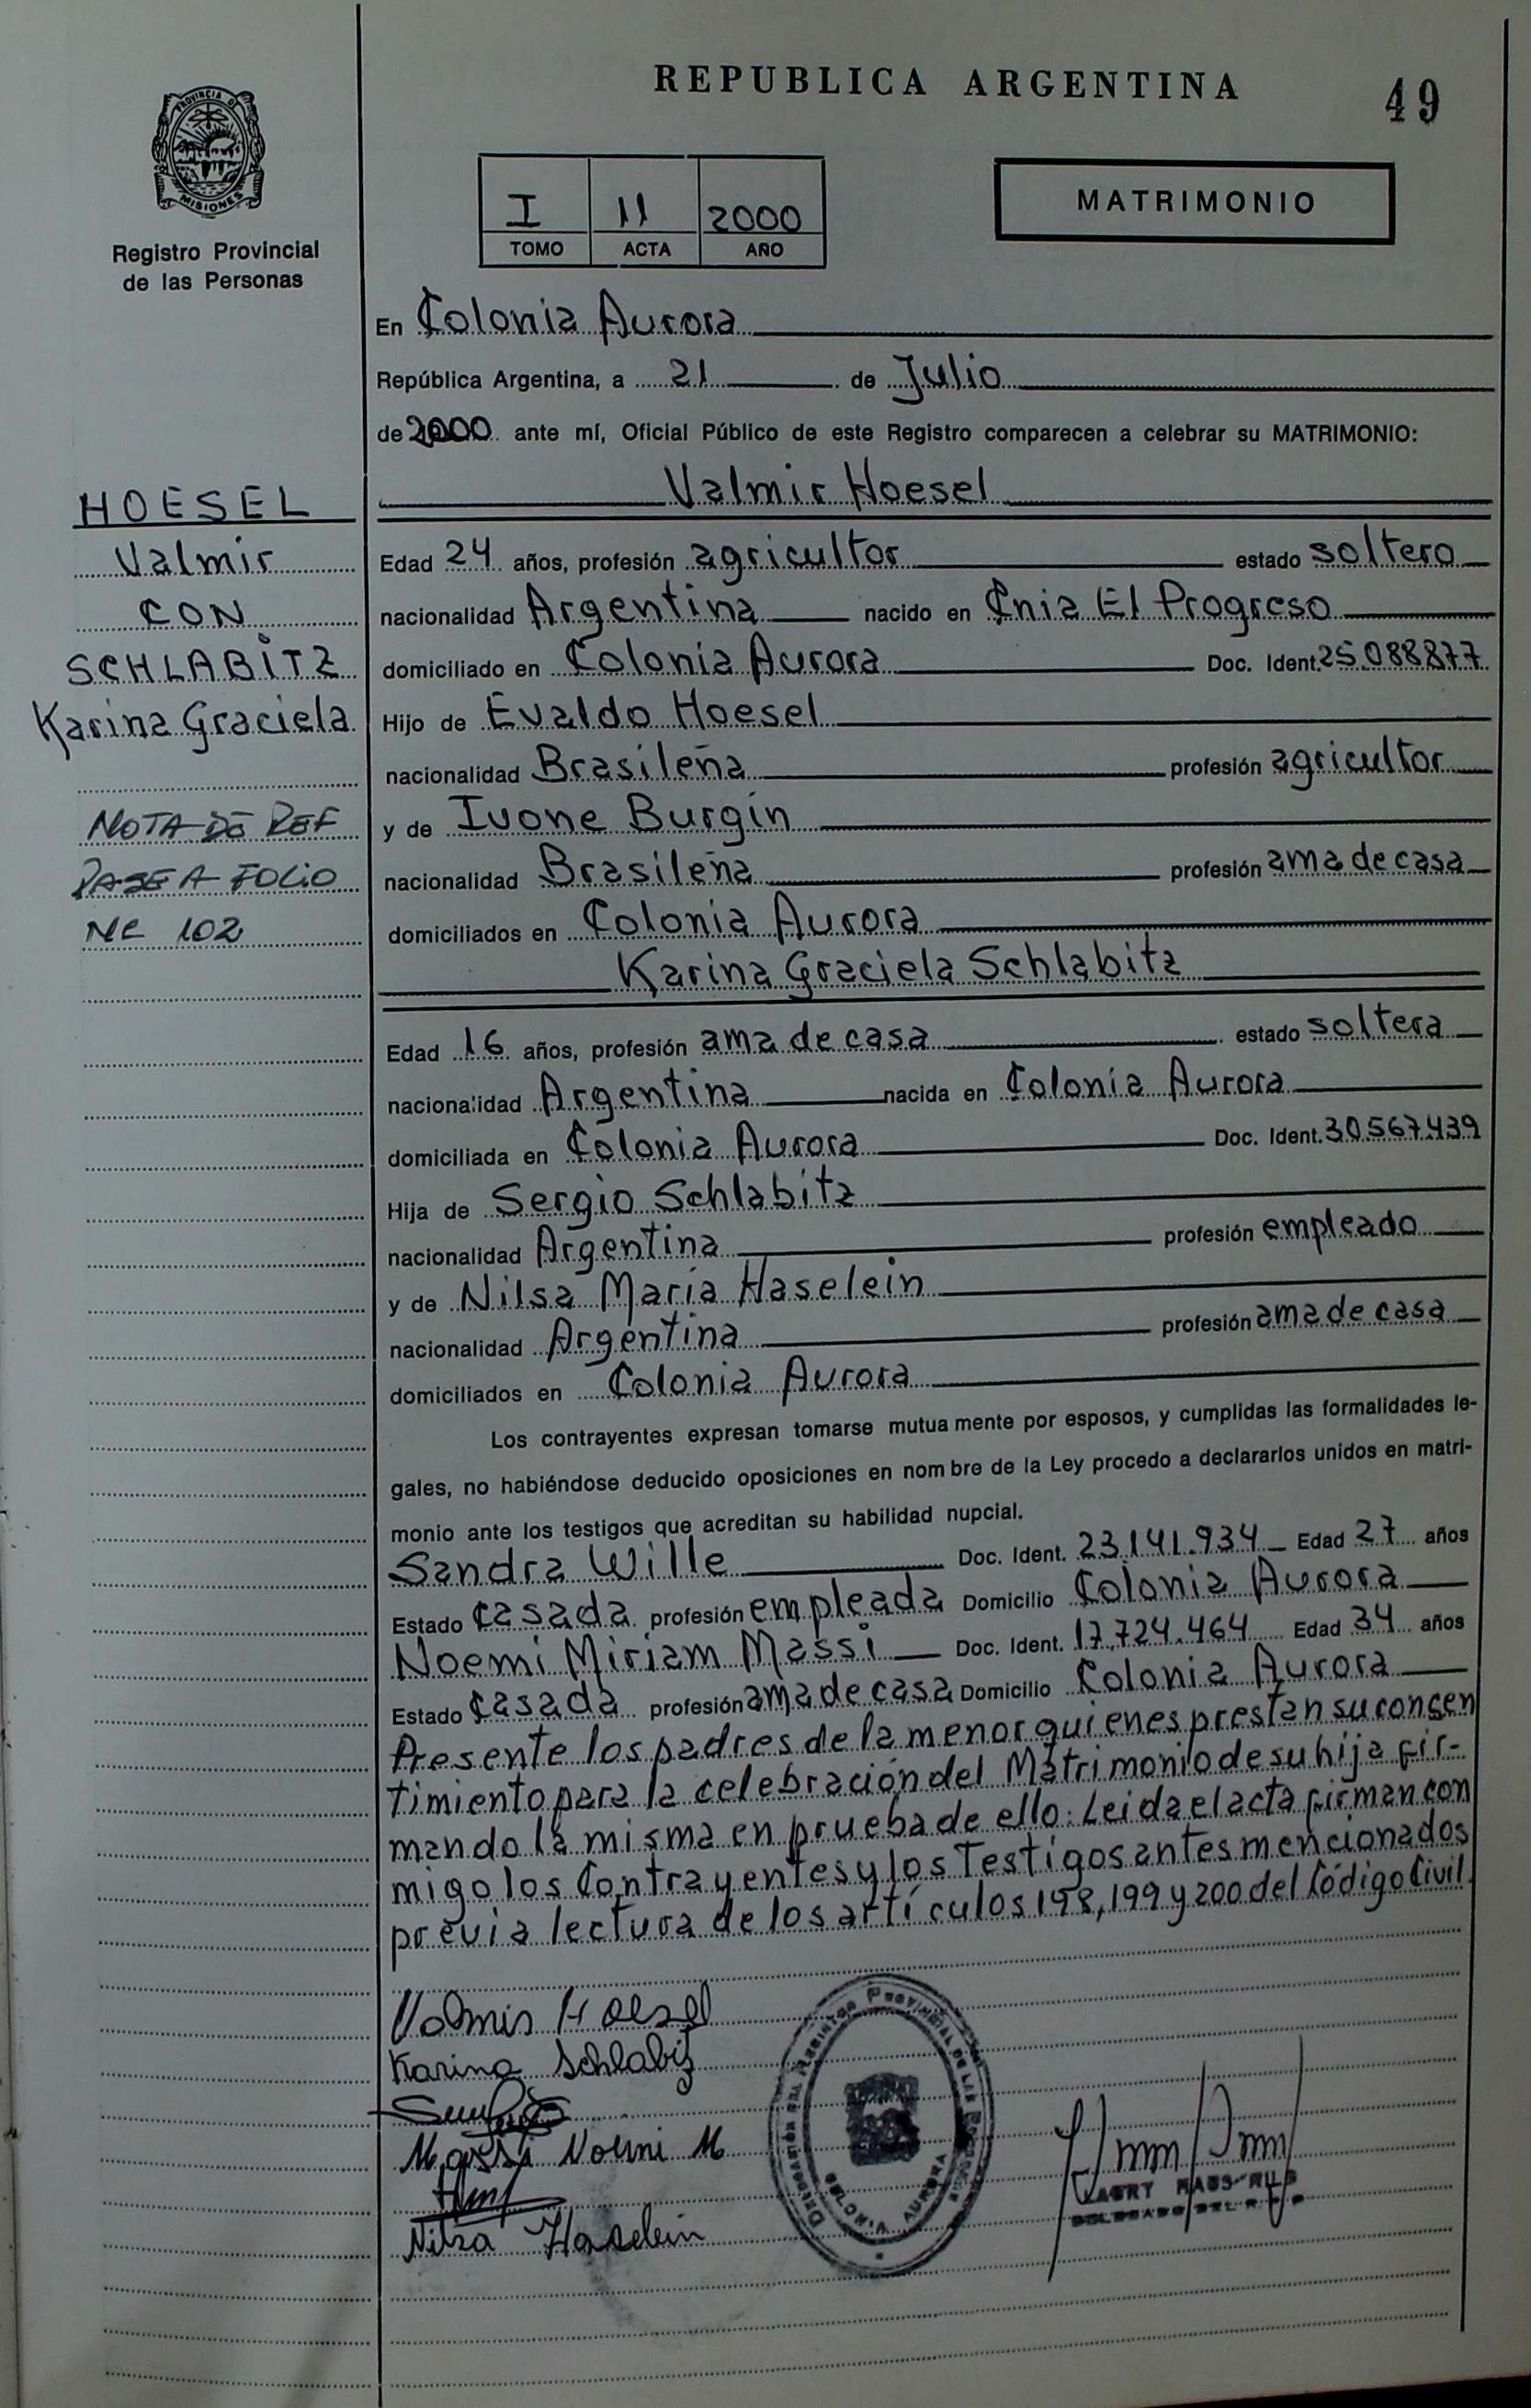 REPUBLICA ARGENTINA
49
PROVINCIA DE
MISIONES
Registro Provincial
de las Personas
I 11 2000
TOMO ACTA AÑO
MATRIMONIO
En Colonia Aurora
República Argentina, a 21 de Julio
de 2000 ante mí, Oficial Público de este Registro comparecen a celebrar su MATRIMONIO:
Valmir Hoesel
HOESEL
Valmir
CON
SCHLABITZ
Karina Graciela
NOTA DE REF
PASE A FOLIO
102
Edad 24 años, profesión agricultor estado soltero
nacionalidad Argentina nacido en Cnia El Progreso
domiciliado en Colonia Aurora Doc. Ident. 25.088877
Hijo de Evaldo Hoesel
nacionalidad Brasileña profesión agricultor
y de Ivone Burgin
nacionalidad Brasileña profesión ama de casa
domiciliados en Colonia Aurora
Karina Graciela Schlabitz
Edad 16 años, profesión ama de casa estado soltera
nacionalidad Argentina nacida en Colonia Aurora
domiciliada en Colonia Aurora Doc. Ident. 30.567.439
Hija de Sergio Schlabitz
nacionalidad Argentina profesión empleado
y de Nilsa María Haselein
nacionalidad Argentina profesión ama de casa
domiciliados en Colonia Aurora
Los contrayentes expresan tomarse mutuamente por esposos, y cumplidas las formalidades le-
gales, no habiéndose deducido oposiciones en nombre de la Ley procedo a declararlos unidos en matri-
monio ante los testigos que acreditan su habilidad nupcial.
Sandra Wille Doc. Ident. 23.141.934 Edad 27 años
Estado casada profesión empleada Domicilio Colonia Aurora
Noemi Miriam Massi Doc. Ident. 17.724.464 Edad 34 años
Estado casada profesión ama de casa Domicilio Colonia Aurora
Presente los padres de la menor quienes prestan su consen
timiento para la celebración del Matrimonio de su hija fir-
mando la misma en prueba de ello: Leida el acta firman con
migo los Contrayentes y los Testigos antes mencionados
previa lectura de los artículos 198, 199 y 200 del Código Civil.
Valmir Hoesel
Karina Schlabitz
Massi Noemi M
Nilsa Haselein
COLONIA AURORA